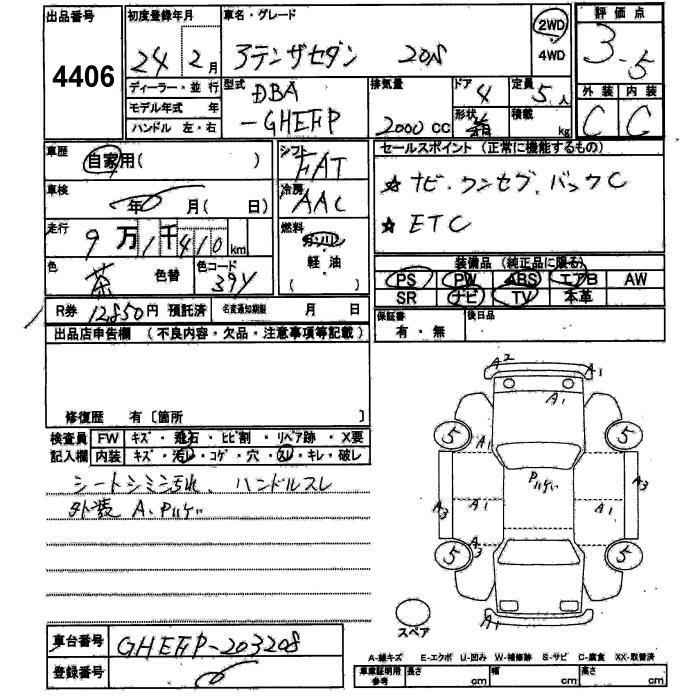 出品番号 初度登録年月 車名・グレード 2WD 評価点
4406 24年2月 アテンザセダン 20S 4WD 3.5
ディーラー・並行 型式 DBA 排気量 ドア 4 定員 5人 外装 内装
モデル年式 年 -GHEFP 2000 CC 形状 積載 C C
ハンドル 左・右 kg
車歴 自家用( ) シフト FAT セールスポイント (正常に機能するもの)
車検 年 月( 日) 冷房 AAC ☆ ナビ・ワンセグ、バックC
走行 9万1千410km 燃料 ガソリン ☆ ETC
色 茶 色替 色コード 39Y 軽・油 ( )
装備品 (純正品に限る)
PS PW ABS エアB AW
SR ナビ TV 本革
R券 12,850円 預託済 名変通知期限 月 日 保証書 有・無 後日品
出品店申告欄 (不良内容・欠品・注意事項等記載)
修復歴 有〔箇所 〕
検査員 FW キズ・飛石・ヒビ割・リペア跡・X要
記入欄 内装 キズ・汚レ・コゲ・穴・スレ・キレ・破レ
シートシミ汚れ、ハンドルスレ
外装 A、Pハゲ
A2 A1
A1
5 A1 5
Pハゲ
A3 A1 A1 A3
A3
5 5
A1
スペア
車台番号 GHEFP-203208
登録番号
A-線キズ E-エクボ U-凹み W-補修跡 S-サビ C-腐食 XX-取替済
車庫証明用参考 長さ cm 幅 cm 高さ cm